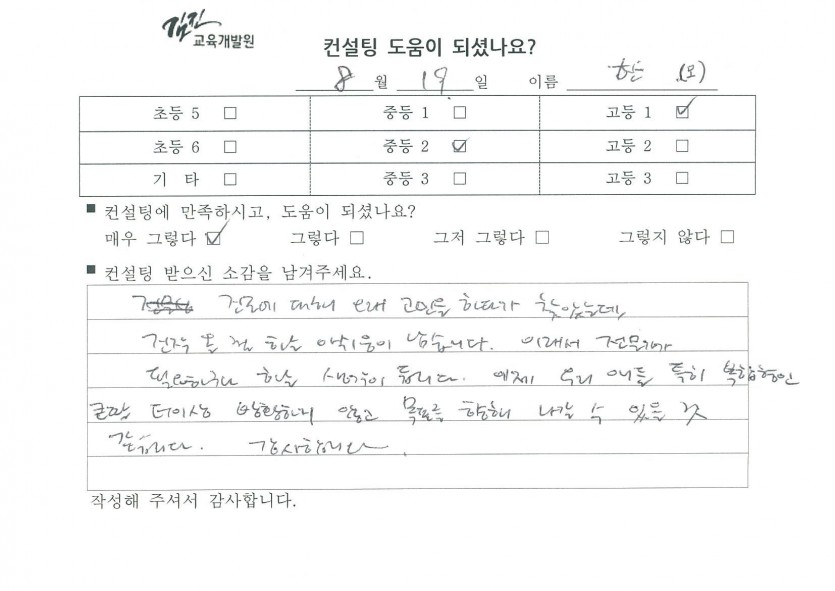 김진
교육개발원
컨설팅 도움이 되셨나요?
8월 19일 이름 한 (모)
초등 5 □ 중등 1 □ 고등 1 ☑
초등 6 □ 중등 2 ☑ 고등 2 □
기 타 □ 중등 3 □ 고등 3 □
■ 컨설팅에 만족하시고, 도움이 되셨나요?
매우 그렇다 ☑ 그렇다 □ 그저 그렇다 □ 그렇지 않다 □
■ 컨설팅 받으신 소감을 남겨주세요.
진로에 대해 오래 고민을 하다가 찾았는데,
진작 올 걸 하는 아쉬움이 남습니다. 이래서 전문가가
필요하구나 하는 생각이 듭니다. 이제 우리 애들 특히 복합형인
더이상 방황하지 않고 목표를 향해 나갈 수 있을 것
같습니다. 감사합니다.
작성해 주셔서 감사합니다.